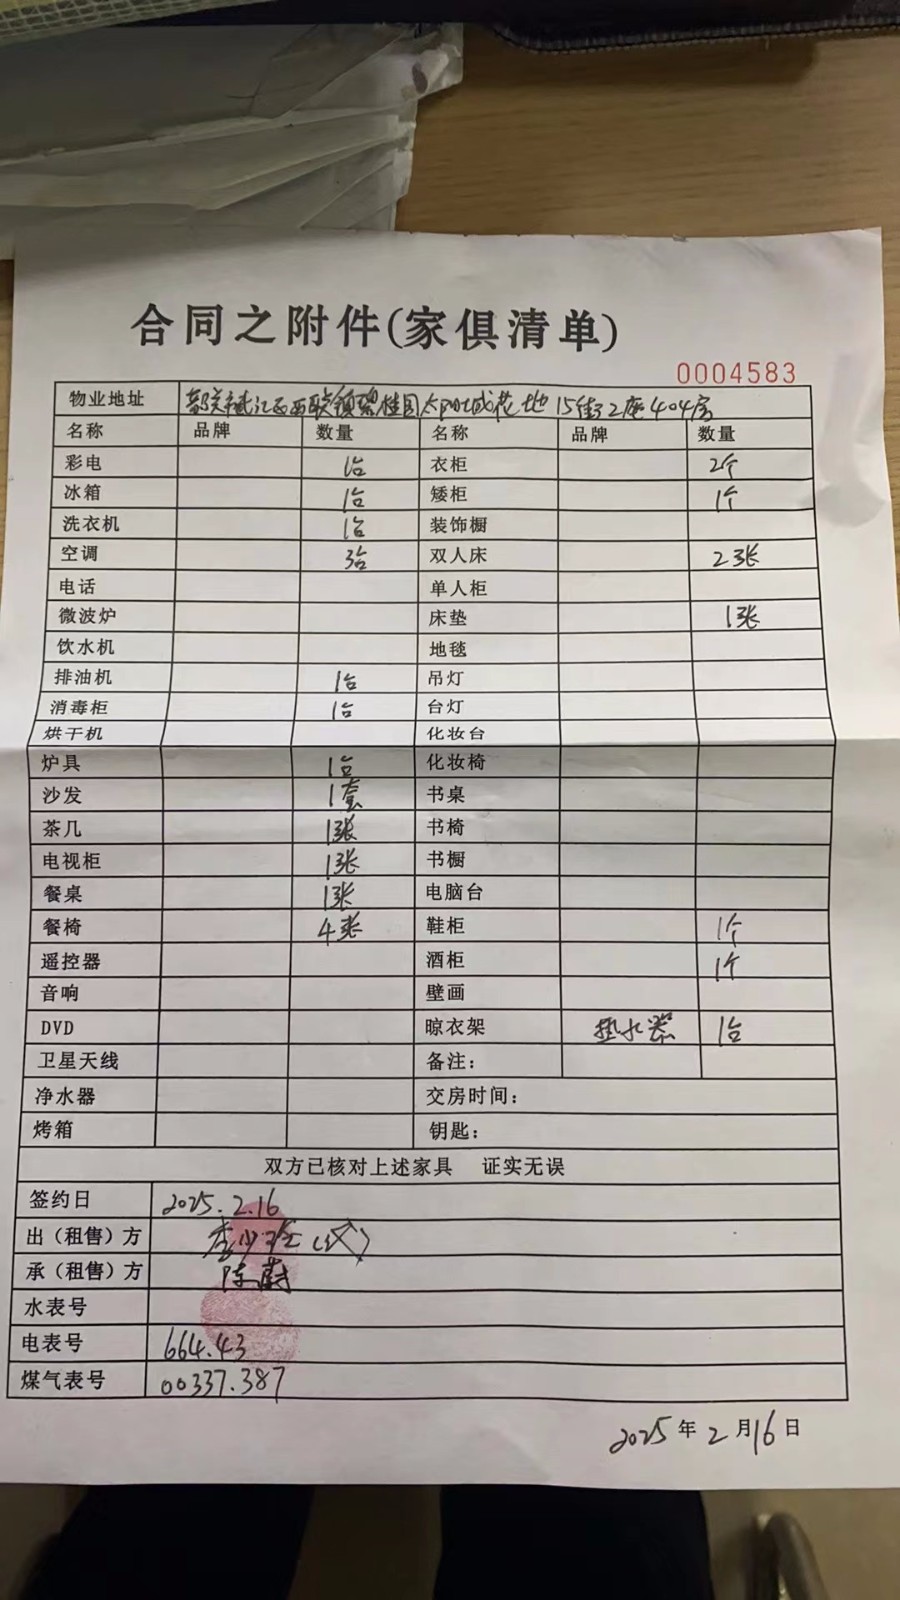 合同之附件(家俱清单)
0004583
物业地址 韶关市武江区西联镇碧桂园太阳城花地15街2座404房
名称 品牌 数量 名称 品牌 数量
彩电 1台 衣柜 2个
冰箱 1台 矮柜 1个
洗衣机 1台 装饰橱
空调 3台 双人床 2张
电话 单人柜
微波炉 床垫 1张
饮水机 地毯
排油机 1台 吊灯
消毒柜 1台 台灯
烘干机 化妆台
炉具 1台 化妆椅
沙发 1套 书桌
茶几 1张 书椅
电视柜 1张 书橱
餐桌 1张 电脑台
餐椅 4张 鞋柜 1个
遥控器 酒柜 1个
音响 壁画
DVD 晾衣架 热水器 1台
卫星天线 备注：
净水器 交房时间：
烤箱 钥匙：
双方已核对上述家具 证实无误
签约日 2025.2.16
出（租售）方 李少玲（代）
承（租售）方 陈蔚
水表号
电表号 664.43
煤气表号 00337.387
2025年2月16日